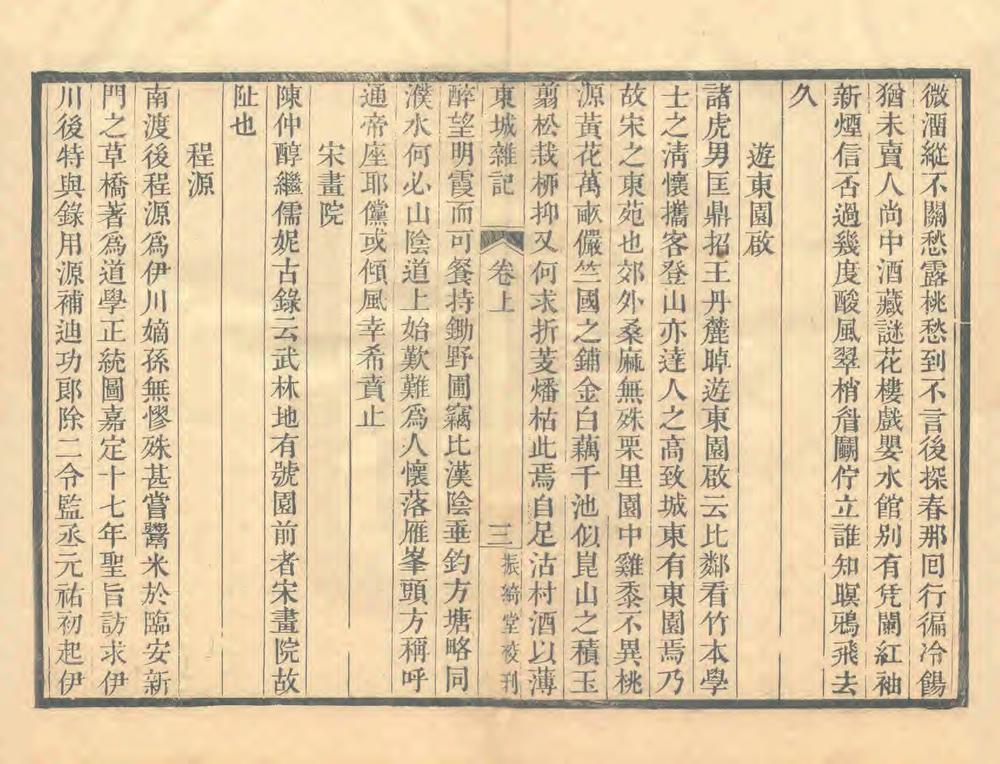 微溜縱不關愁露桃愁到不言後探春那回行徧冷餳
猶未賣人尚中酒藏謎花樓戲嬰水館別有凭闌紅袖
新煙信否過幾度酸風翠梢眉鬭佇立誰知暝鴉飛去
久
遊東園啟
諸虎男匡鼎招王丹麓晫遊東園啟云比鄰看竹本學
士之淸懷攜客登山亦達人之高致城東有東園焉乃
故宋之東苑也郊外桑麻無殊栗里園中雞黍不異桃
源黃花萬畝儼竺國之鋪金白藕千池似崑山之積玉
翦松栽栁抑又何求折芰燔枯此焉自足沽村酒以薄
東城雜記
卷上
三
振綺堂校刊
醉望明霞而可餐持鋤野圃竊比漢陰垂釣方塘略同
濮水何必山陰道上始歎難爲人懷落雁峯頭方稱呼
通帝座耶儻或傾風幸希賁止
宋畫院
陳仲醇繼儒妮古錄云武林地有號園前者宋畫院故
阯也
程源
南渡後程源爲伊川嫡孫無憀殊甚嘗鬻米於臨安新
門之草橋著爲道學正統圖嘉定十七年聖旨訪求伊
川後特與錄用源補迪功郞除二令監丞元祐初起伊